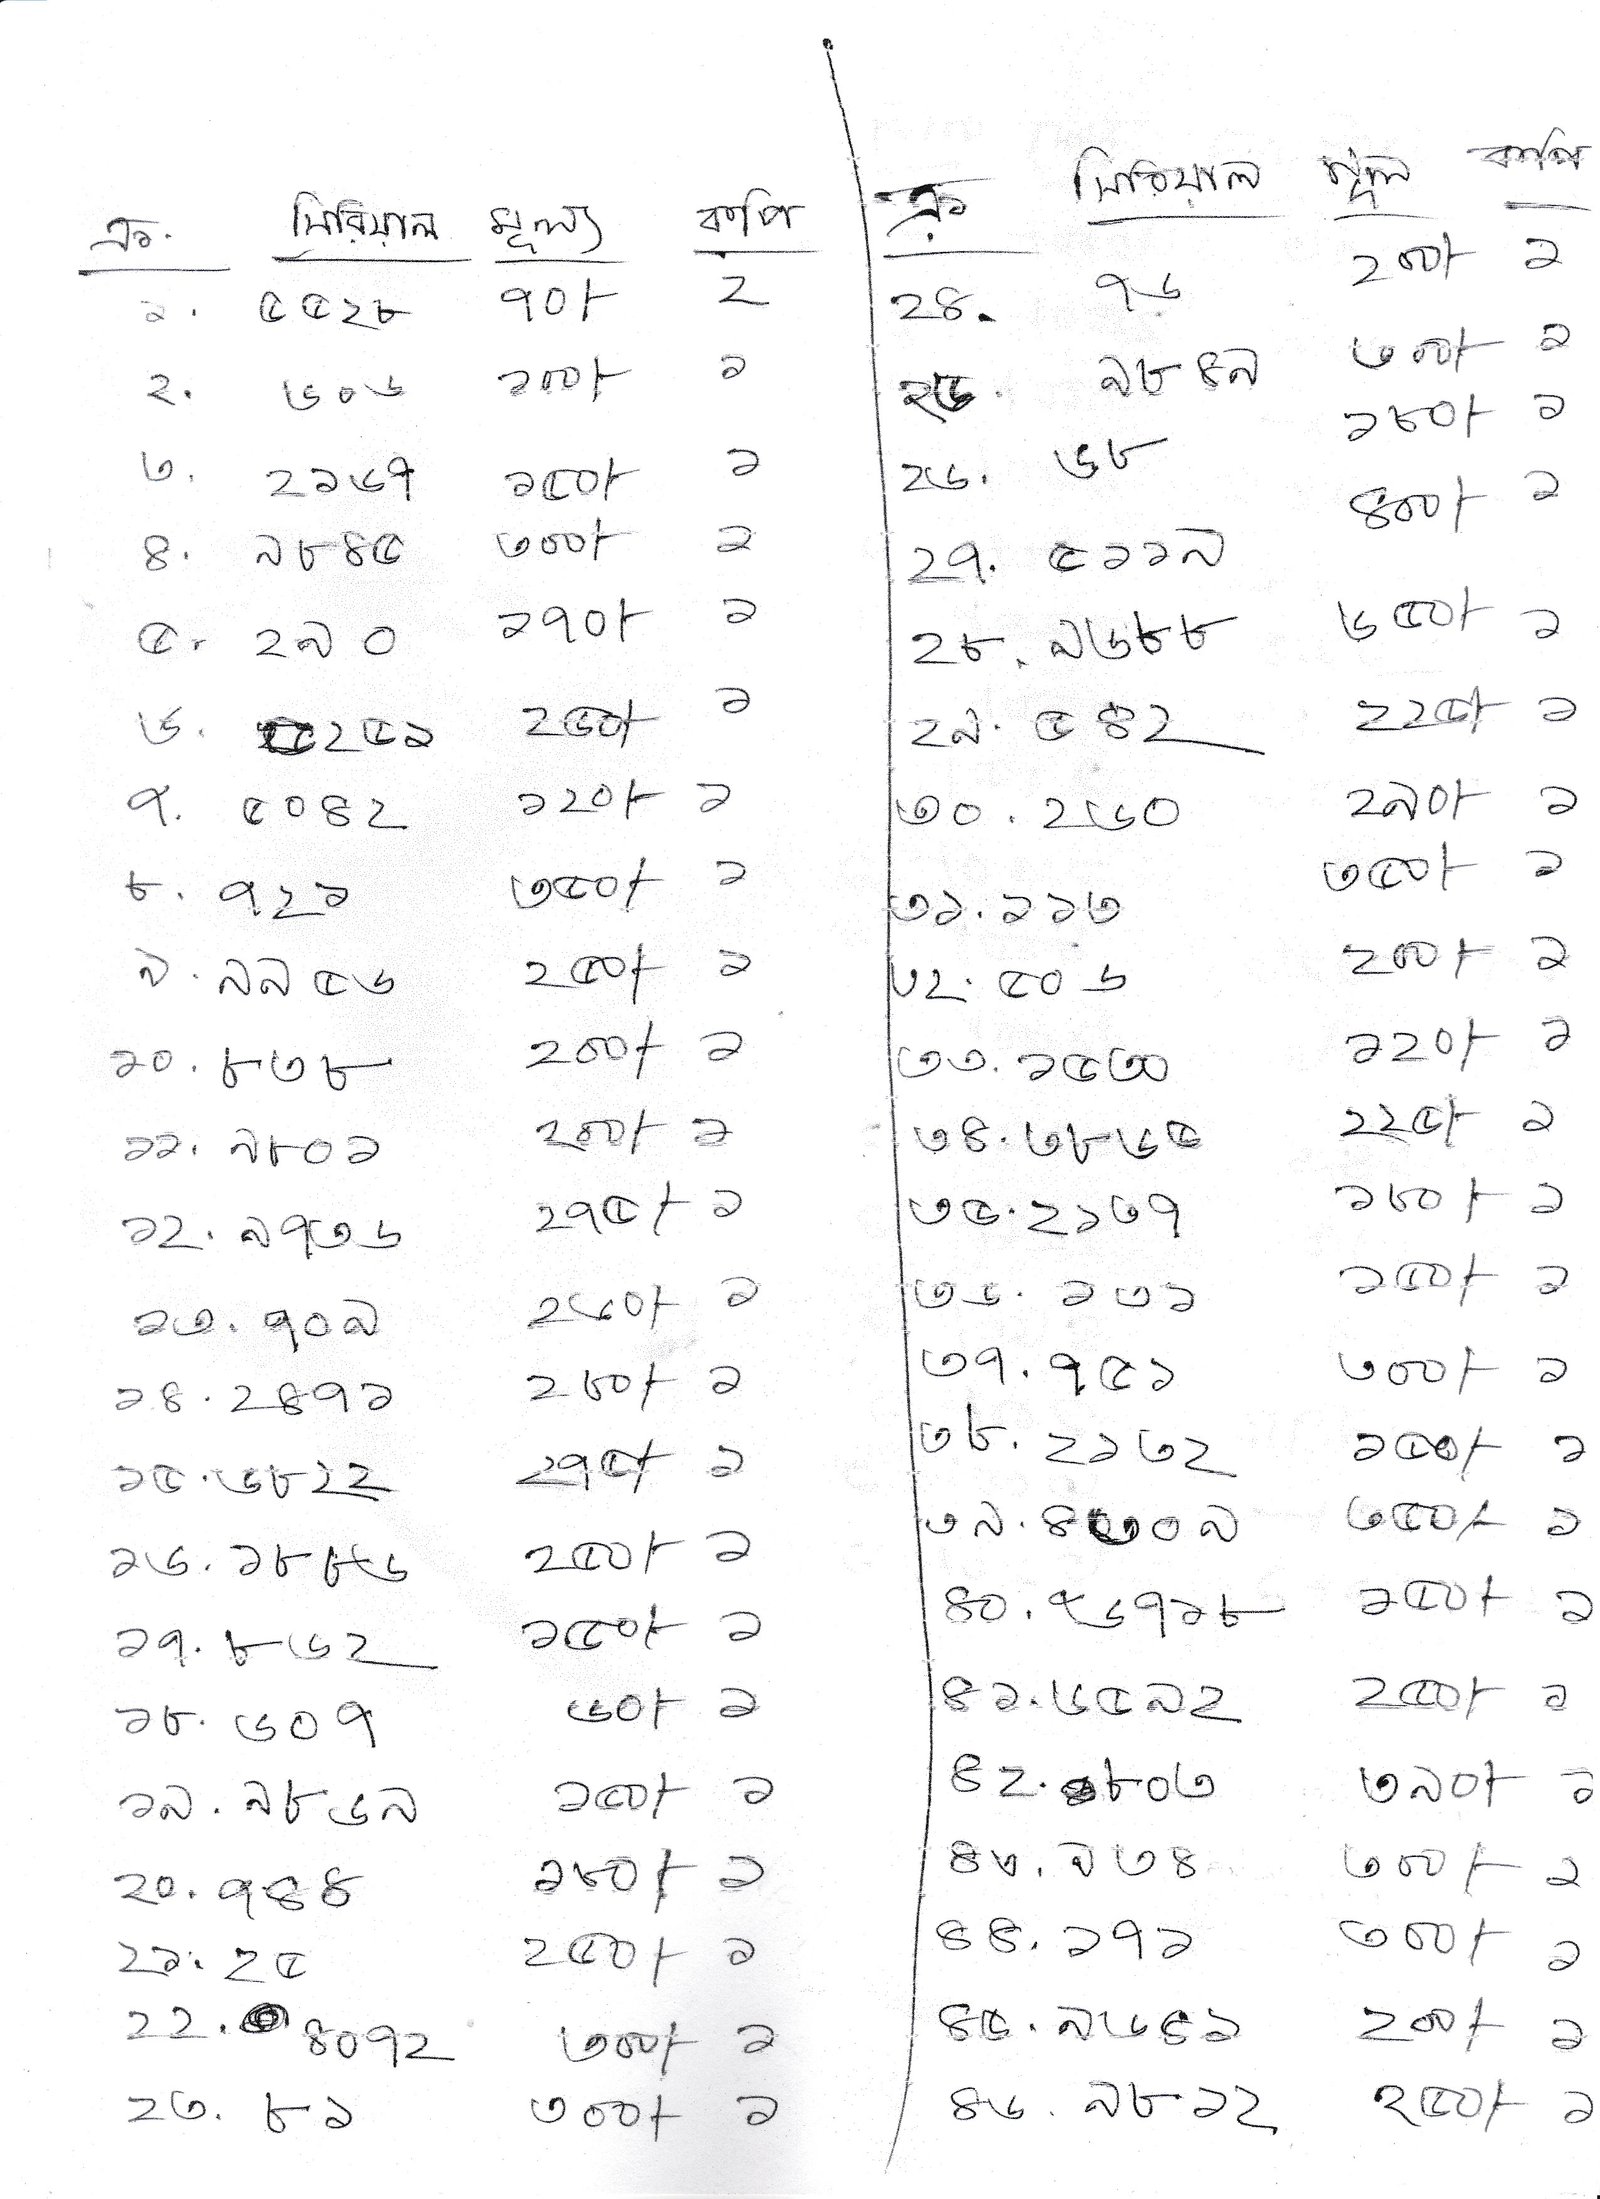 ক্রঃ সিরিয়াল মূল্য কপি
১. ৫৫২৮ ৭০/- ২
২. ৬০৬ ১০০/- ১
৩. ২১৬৭ ১৫০/- ১
৪. ৯৮৪৫ ৩০০/- ১
৫. ২৯০ ১৭০/- ১
৬. ২৫১ ২৫০/- ১
৭. ৫০৪২ ১২০/- ১
৮. ৭২১ ৩৫০/- ১
৯. ৯৯৫৬ ২৫০/- ১
১০. ৮৩৮ ২০০/- ১
১১. ৯৮০১ ২০০/- ১
১২. ৯৭৩৬ ২৭৫/- ১
১৩. ৭০৯ ২৬০/- ১
১৪. ২৪৭১ ২৮০/- ১
১৫. ৬৮২২ ২৭৫/- ১
১৬. ১৮৮৬ ২৫০/- ১
১৭. ৮৬২ ১৫০/- ১
১৮. ৬০৭ ৬০/- ১
১৯. ৯৮৬৯ ১৫০/- ১
২০. ৭৪৪ ১৮০/- ১
২১. ২৫ ২৫০/- ১
২২. ৪০৭২ ৩০০/- ১
২৩. ৮১ ৩০০/- ১
ক্রঃ সিরিয়াল মূল্য কপি
২৪. ৭৬ ২০০/- ১
২৫. ৯৮৪৯ ৩০০/- ১
২৬. ৬৮ ১৮০/- ১
২৭. ৫১১৯ ৪০০/- ১
২৮. ৯৬৮৮ ৬৫০/- ১
২৯. ৫৪২ ২২৫/- ১
৩০. ২৬০ ২৯০/- ১
৩১. ১১৩ ৩৫০/- ১
৩২. ৫০৬ ২০০/- ১
৩৩. ১৫৩০ ১২০/- ১
৩৪. ৩৮৬৫ ২২৫/- ১
৩৫. ২১৩৭ ১৮০/- ১
৩৬. ১৩১ ১৫০/- ১
৩৭. ৭৫১ ৩০০/- ১
৩৮. ২১৩২ ১৫০/- ১
৩৯. ৪৩০৯ ৩৫০/- ১
৪০. ৭৬৭১৮ ১৫০/- ১
৪১. ৬৫৯২ ২৫০/- ১
৪২. ৮০৩ ৩৯০/- ১
৪৩. ৯৩৪ ৩০০/- ১
৪৪. ১৭১ ৩০০/- ১
৪৫. ৯৬৫১ ২০০/- ১
৪৬. ৯৮১২ ২৫০/- ১